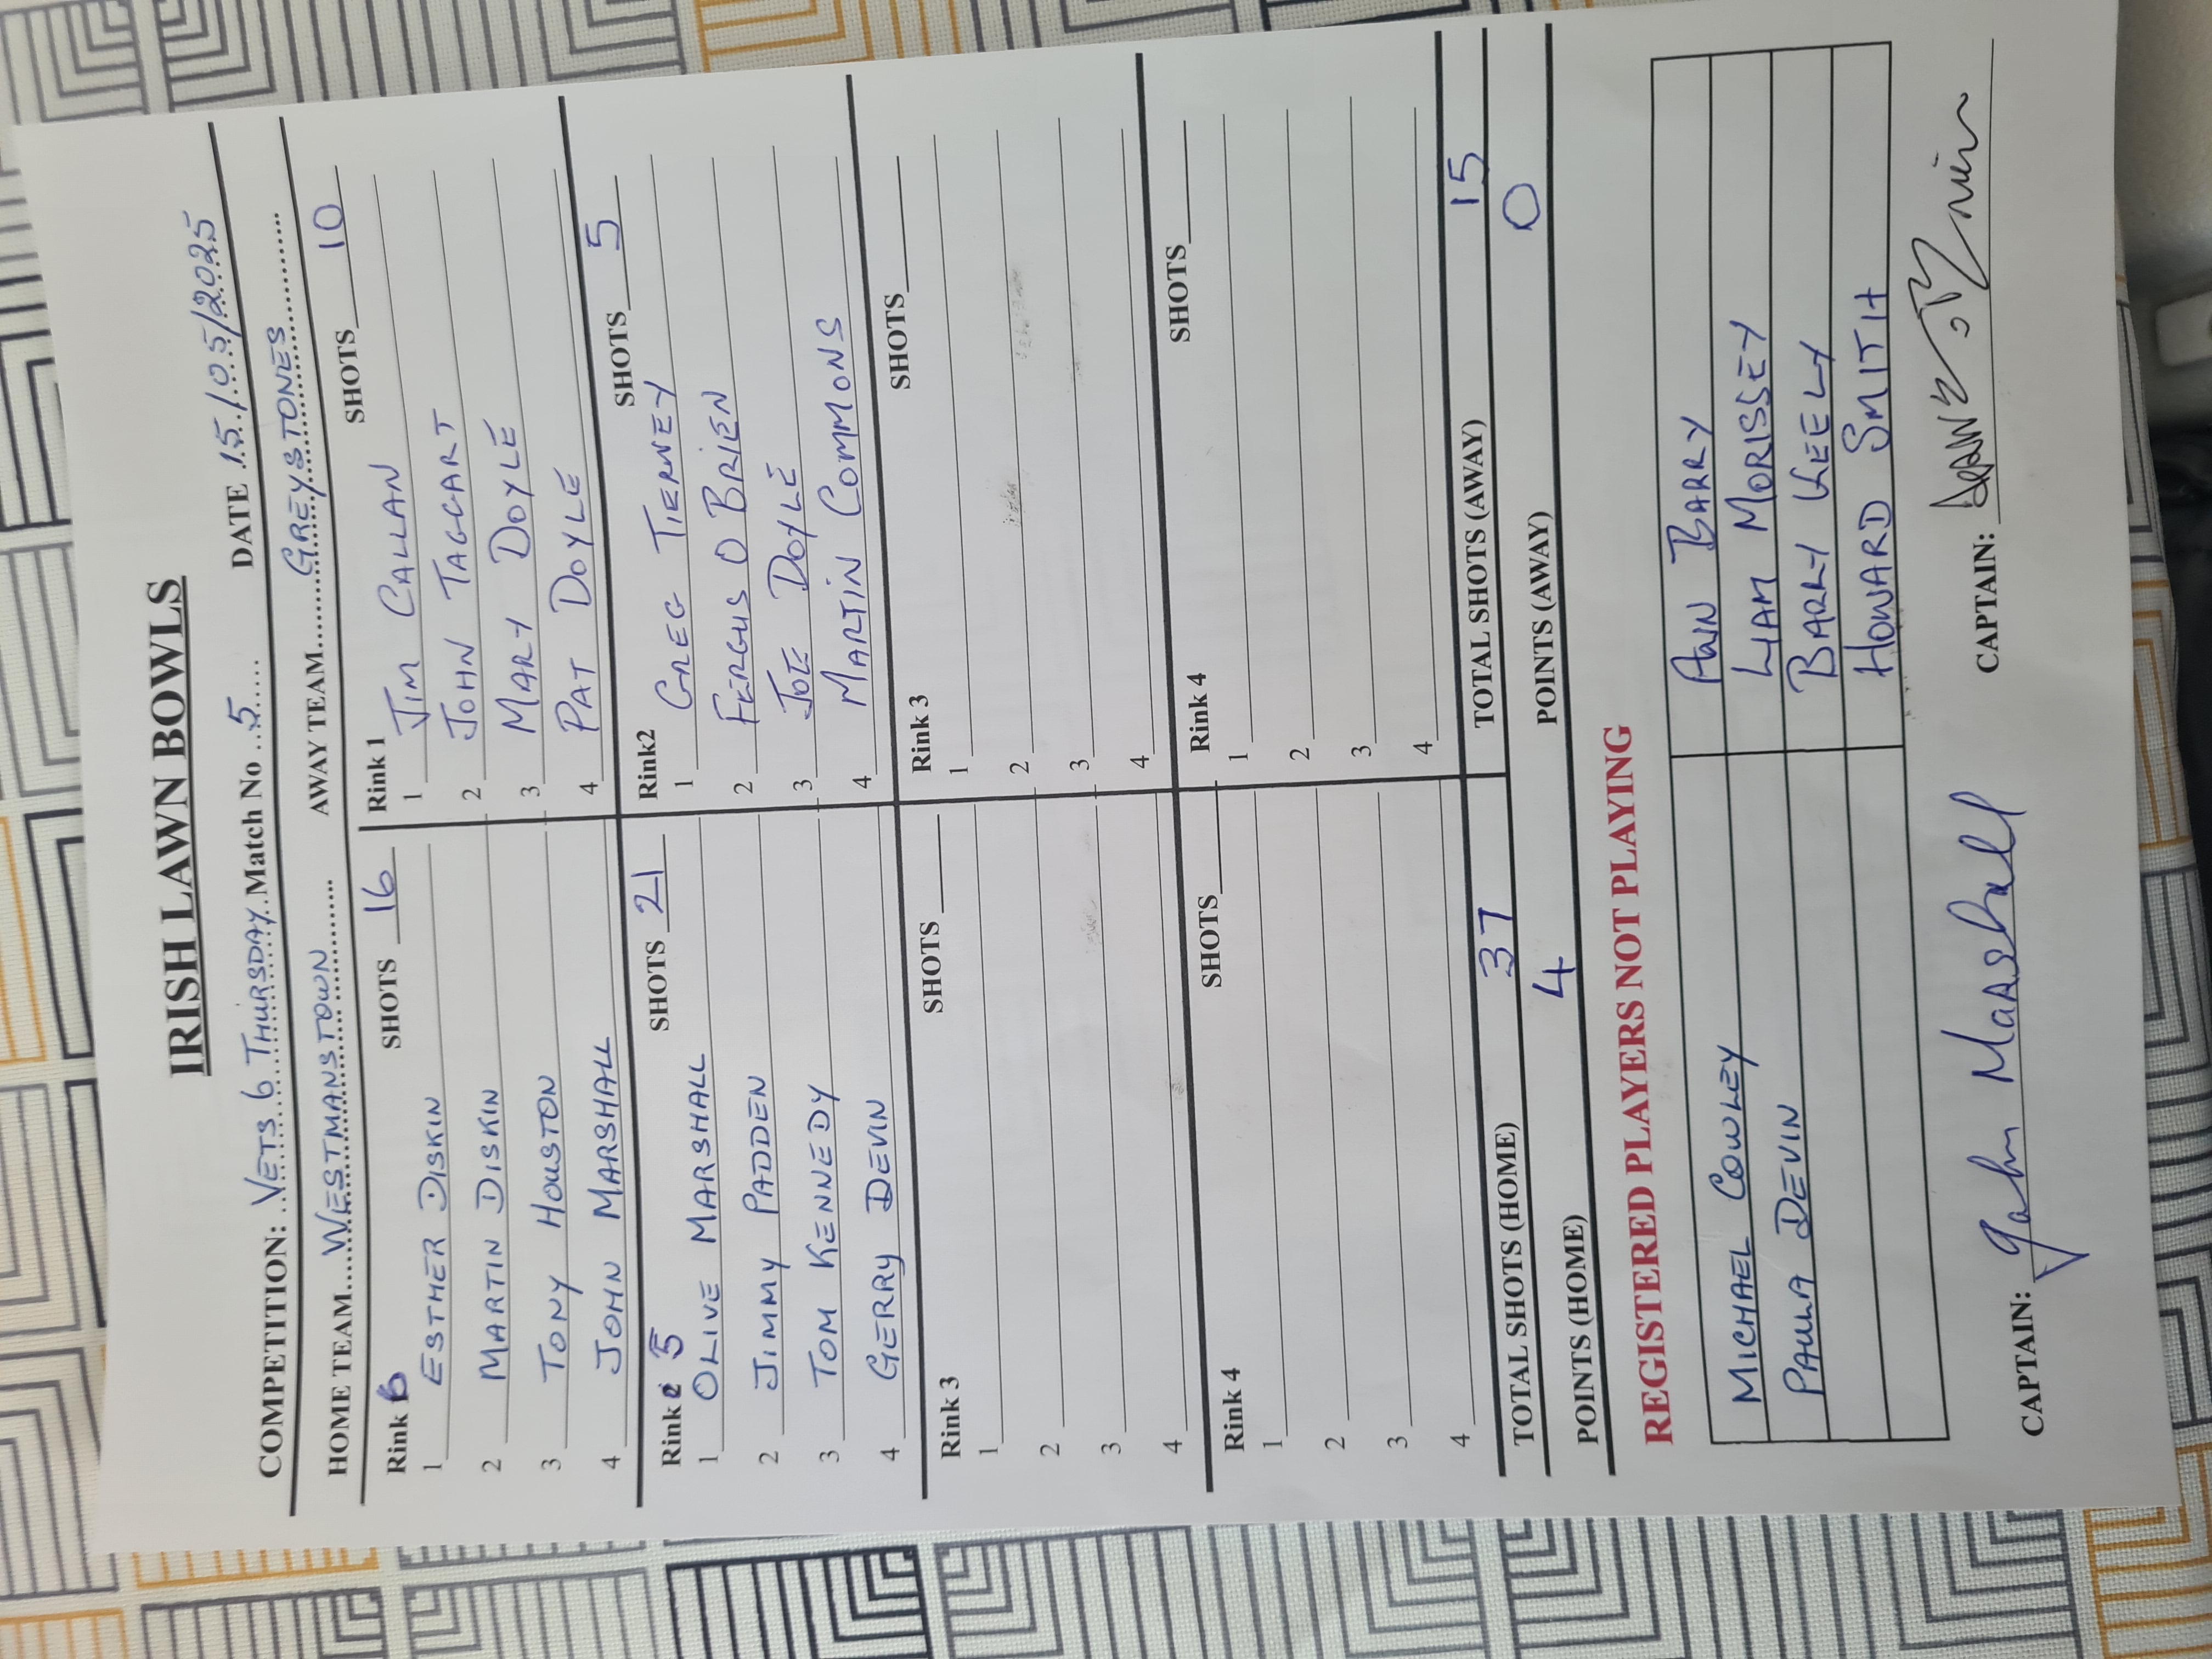 IRISH LAWN BOWLS
COMPETITION: VETS 6 THURSDAY Match No 5 DATE 15/05/2025
HOME TEAM WESTMANSTOWN AWAY TEAM GREYSTONES
Rink SHOTS 16
1 ESTHER DISKIN
2 MARTIN DISKIN
3 TONY HOUSTON
4 JOHN MARSHALL
Rink 1 SHOTS 10
1 JIM CALLAN
2 JOHN TAGGART
3 MARY DOYLE
4 PAT DOYLE
Rink 5 SHOTS 21
1 OLIVE MARSHALL
2 JIMMY PADDEN
3 TOM KENNEDY
4 GERRY DEVIN
Rink2 SHOTS 5
1 GREG TIERNEY
2 FERGUS O BRIEN
3 JOE DOYLE
4 MARTIN COMMONS
Rink 3 SHOTS
1
2
3
4
Rink 3 SHOTS
1
2
3
4
Rink 4 SHOTS
1
2
3
4
Rink 4 SHOTS
1
2
3
4
TOTAL SHOTS (HOME) 37 TOTAL SHOTS (AWAY) 15
POINTS (HOME) 4 POINTS (AWAY) 0
REGISTERED PLAYERS NOT PLAYING
MICHAEL COWLEY ANN BARRY
PAULA DEVIN LIAM MORISSEY
BARRY KEELY
HOWARD SMITH
CAPTAIN: John Marshall CAPTAIN: